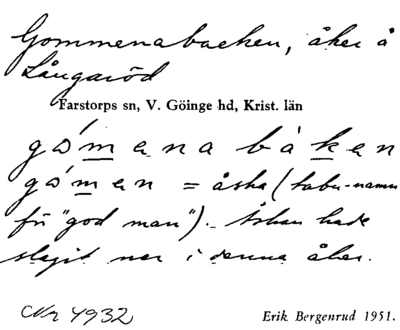 Gommenabacken, åker å
Långaröd
Farstorps sn, V. Göinge hd, Krist. län
gὼmena bàken
gὼmen = åska (tabu-namn
för "god man"). Åskan hade
slagit ner i denna åker.
CNr 4932
Erik Bergenrud 1951.